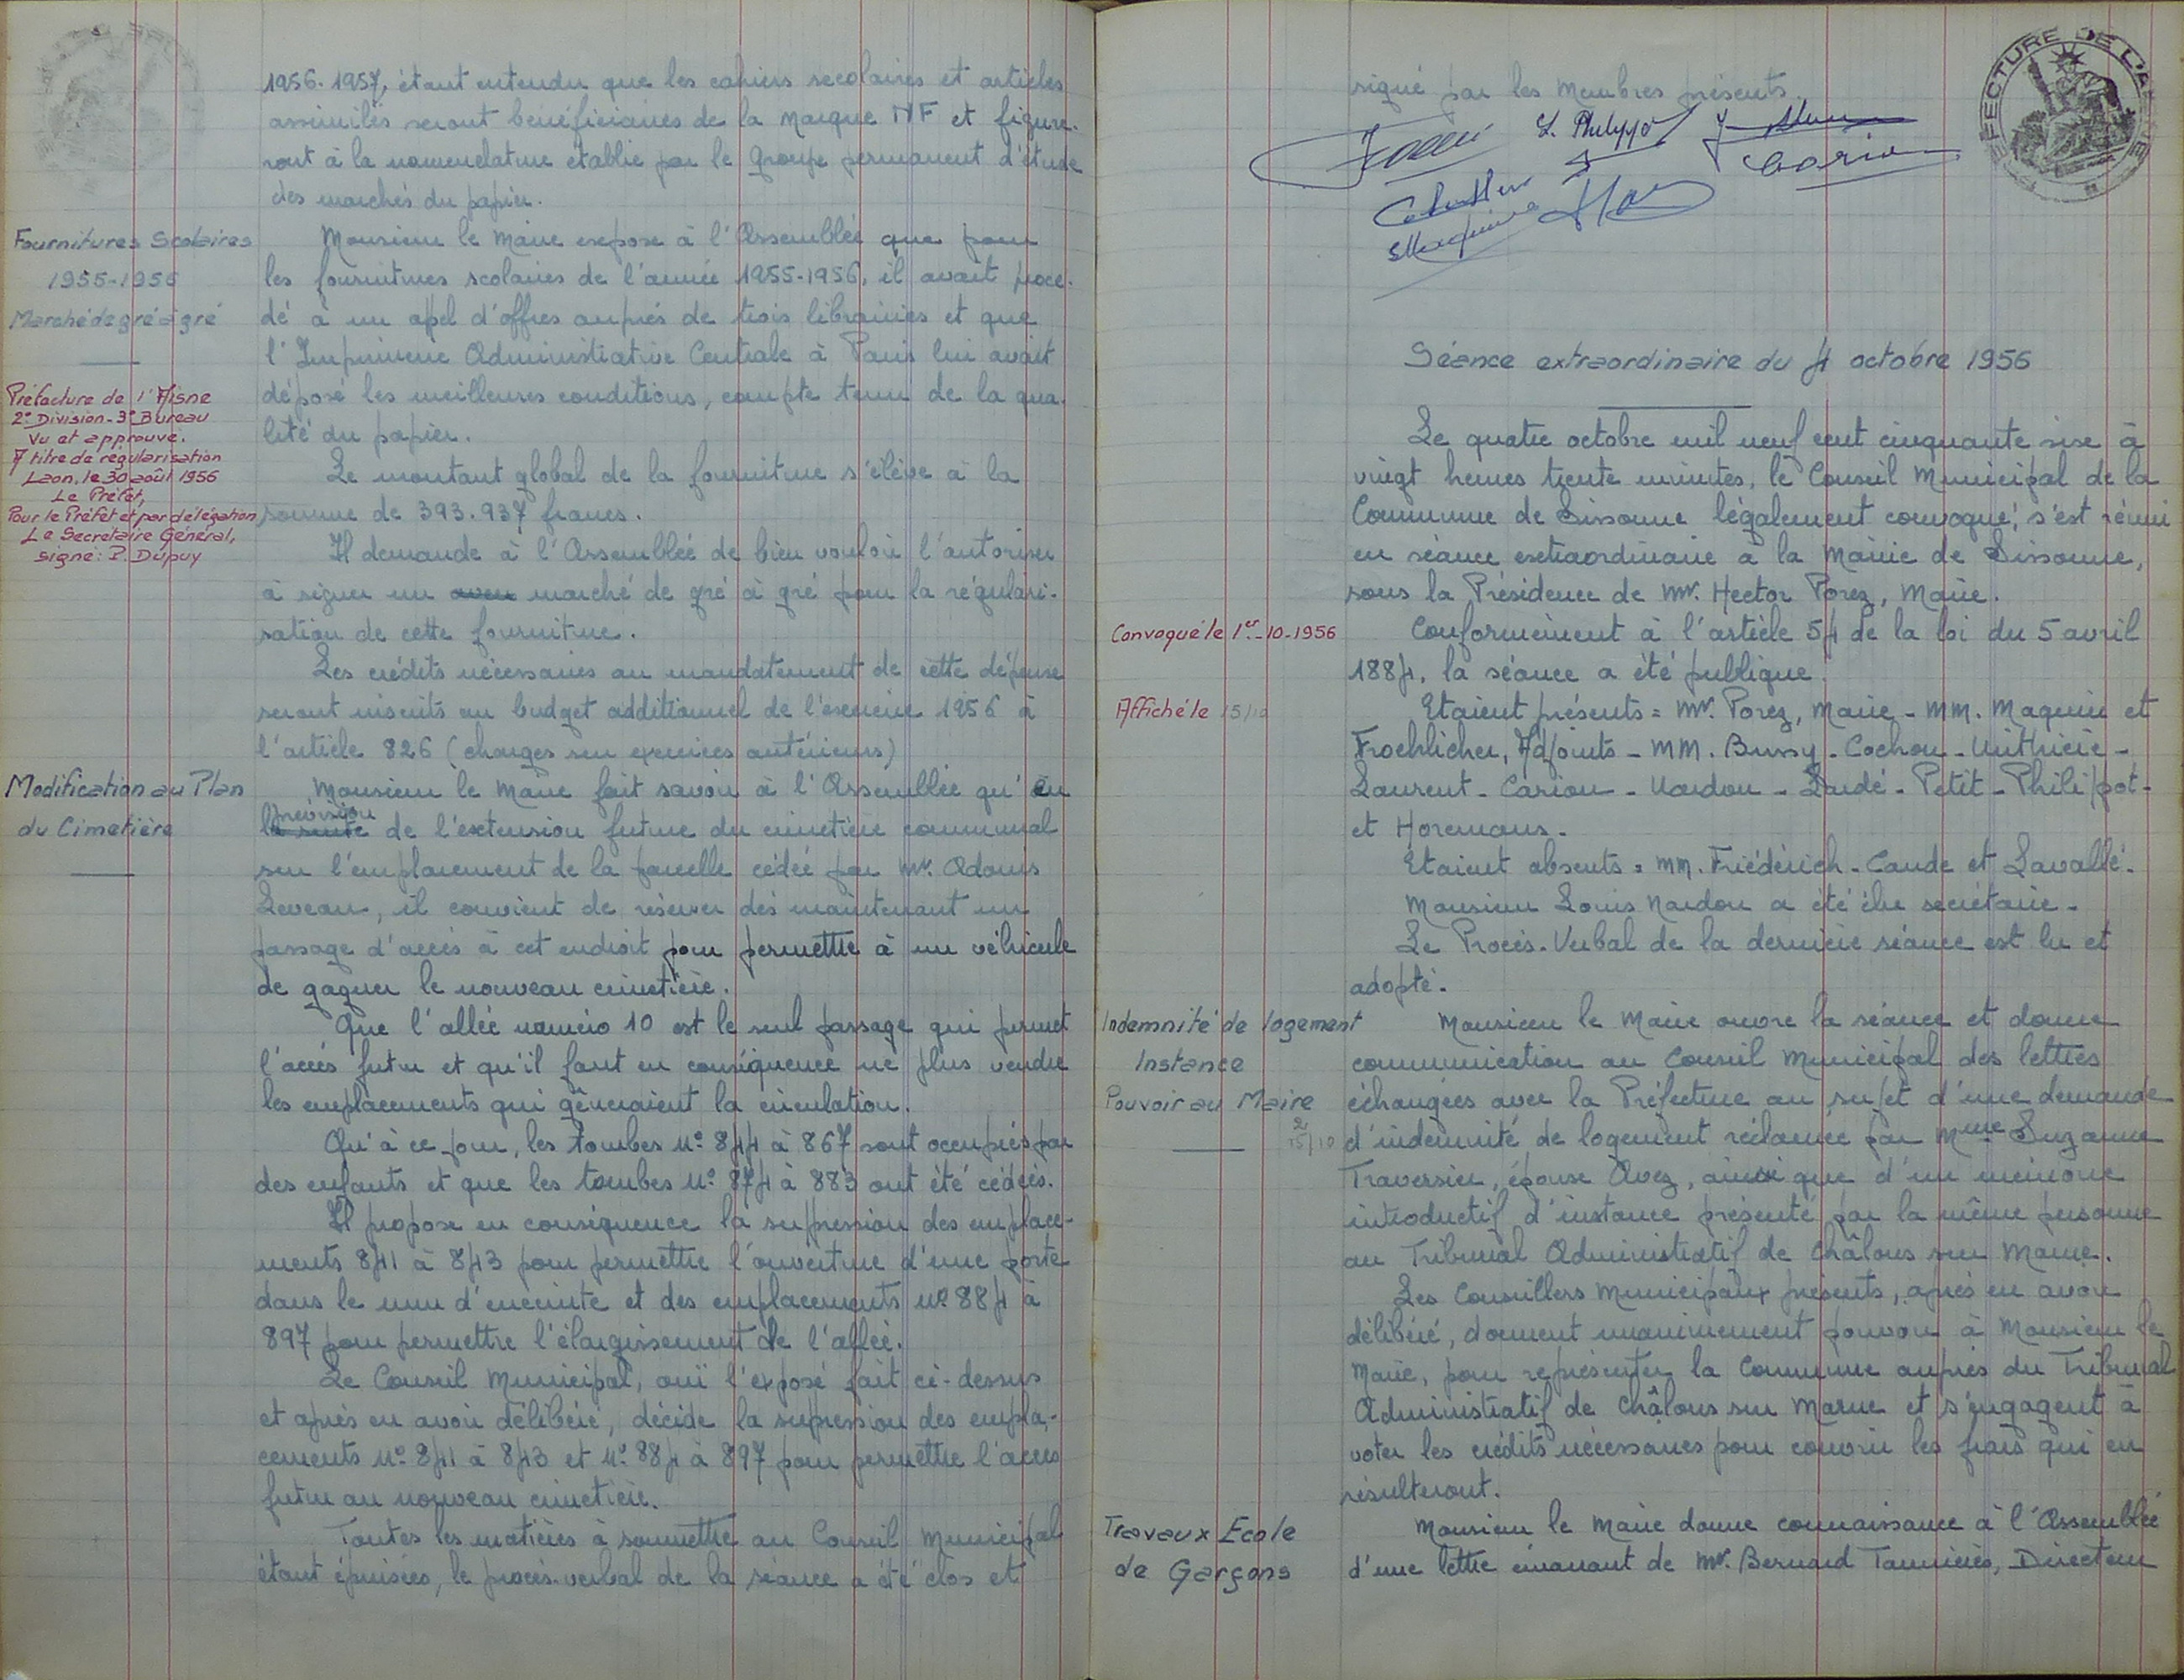 1956-1957, étant entendu que les cahiers secolaires et articles
assimilés seront bénéficiaires de la marque NF et figure-
ront à la nomenclature établie par le Groupe permanent d'étude
des marchés du papier.
Fournitures Scolaires
1955-1956
Marché de gré à gré
Préfecture de l'Aisne
2e Division - 3e Bureau
Vu et approuvé.
A titre de régularisation
Laon, le 30 août 1956
Le Préfet,
Pour le Préfet et par délégation
Le Secrétaire Général,
signé: P. Dupuy
Monsieur le Maire expose à l'Assemblée que pour
les fournitures scolaires de l'année 1955-1956, il avait procé-
dé à un apel d'offres auprès de trois librairies et que
l'Imprimerie Administrative Centrale à Paris lui avait
déposé les meilleures conditions, compte tenu de la qua-
lité du papier.
Le montant global de la fourniture s'élève à la
somme de 393.937 francs.
Il demande à l'Assemblée de bien vouloir l'autoriser
à signer un marché de gré à gré pour la régulari-
sation de cette fourniture.
Les crédits nécessaires au mandatement de cette dépense
seront inscrits au budget additionnel de l'exercice 1956 à
l'article 826 (charges sur exercices antérieurs)
Modification au Plan
du Cimetière
Monsieur le Maire fait savoir à l'Assemblée qu'en
prévision
la suite de l'extension future du cimetière communal
sur l'emplacement de la parcelle cédée par Mr. Adonis
Leveau, il convient de réserver dès maintenant un
passage d'accès à cet endroit pour permettre à un véhicule
de gagner le nouveau cimetière.
Que l'allée numéro 10 est le seul passage qui permet
l'accès futur et qu'il faut en conséquence ne plus vendre
les emplacements qui gêneraient la circulation.
Qu'à ce jour, les tombes No 844 à 867 sont occupées par
des enfants et que les tombes No 874 à 883 ont été cédées.
Il propose en conséquence la supression des emplace-
ments 841 à 843 pour permettre l'ouverture d'une porte
dans le mur d'enceinte et des emplacements No 884 à
897 pour permettre l'élargissement de l'allée.
Le Conseil Municipal, ouï l'exposé fait ci-dessus
et après en avoir délibéré, décide la supression des empla-
cements No 841 à 843 et No 884 à 897 pour permettre l'accès
futur au nouveau cimetière.
Toutes les matières à soumettre au Conseil Municipal
étant épuisées, le procès-verbal de la séance a été clos et
signé par les Membres présents.
L. Philippo
Carion
PREFECTURE DE L'AISNE
Séance extraordinaire du 4 octobre 1956
Le quatre octobre mil neuf cent cinquante sise à
vingt heures trente minutes, le Conseil Municipal de la
Commune de Sissonne légalement convoqué, s'est réuni
en séance extraordinaire à la Mairie de Sissonne,
sous la Présidence de Mr. Hector Porez, Maire.
Convoqué le 1er-10-1956
Conformément à l'article 54 de la loi du 5 avril
1884, la séance a été publique.
Affiché le 15/10
Etaient présents = Mr. Porez, Maire - MM. Maquin et
Froehlicher, Adjoints - MM. Bussy - Cochon - Withier -
Laurent - Carion - Nardou - Lardé - Petit - Philippot -
et Horemans.
Etaient absents = MM. Friédérich - Caude et Lavallé.
Monsieur Louis Nardou a été élu secrétaire.
Le Procès-Verbal de la dernière séance est lu et
adopté.
Indemnité de logement
Instance
Pouvoir au Maire
2
15/10
Monsieur le Maire ouvre la séance et donne
communication au Conseil Municipal des lettres
échangées avec la Préfecture au sujet d'une demande
d'indemnité de logement réclamée par Mme Suzanne
Traversier, épouse Avez, ainsi que d'un mémoire
introductif d'instance présenté par la même personne
au Tribunal Administratif de Châlons sur Marne.
Les Conseillers Municipaux présents, après en avoir
délibéré, donnent unanimement pouvoir à Monsieur le
Maire, pour représenter la Commune auprès du Tribunal
Administratif de Châlons sur Marne et s'engagent à
voter les crédits nécessaires pour couvrir les frais qui en
résulteront.
Travaux Ecole
de Garçons
Monsieur le Maire donne connaissance à l'Assemblée
d'une lettre émanant de Mr. Bernard Tannières, Directeur